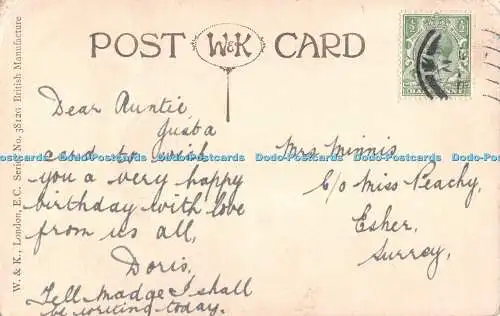 POST W&K CARD
W. & K., London, E.C. Series No. 38120 British Manufacture
Dear Auntie,
Just a
card to wish
you a very happy
birthday with love
from us all,
Doris,
Tell Madge I shall
be writing today.
Mrs Minnis
C/o Miss Peachy,
Esher,
Surrey,
Dodo-Postcards Dodo-Postcards Dodo-Postcards Dodo-Postcards Dodo-Postcards Dodo-Postcards